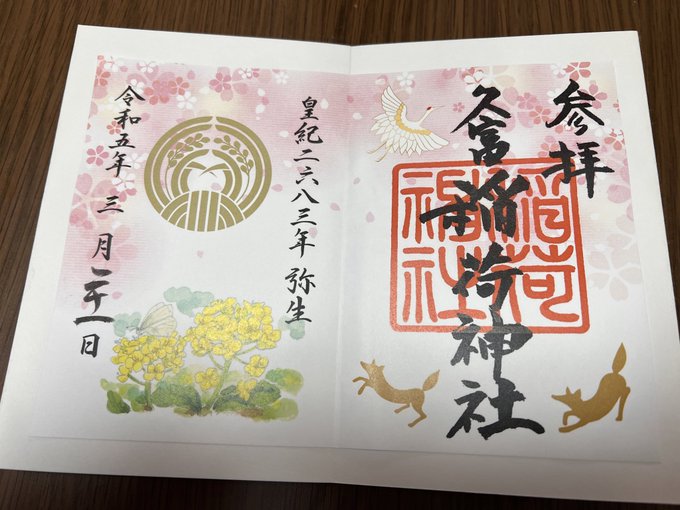 参拝
久富稲荷神社
稲荷
神社
皇紀二六八三年 弥生
令和五年 三月二十一日